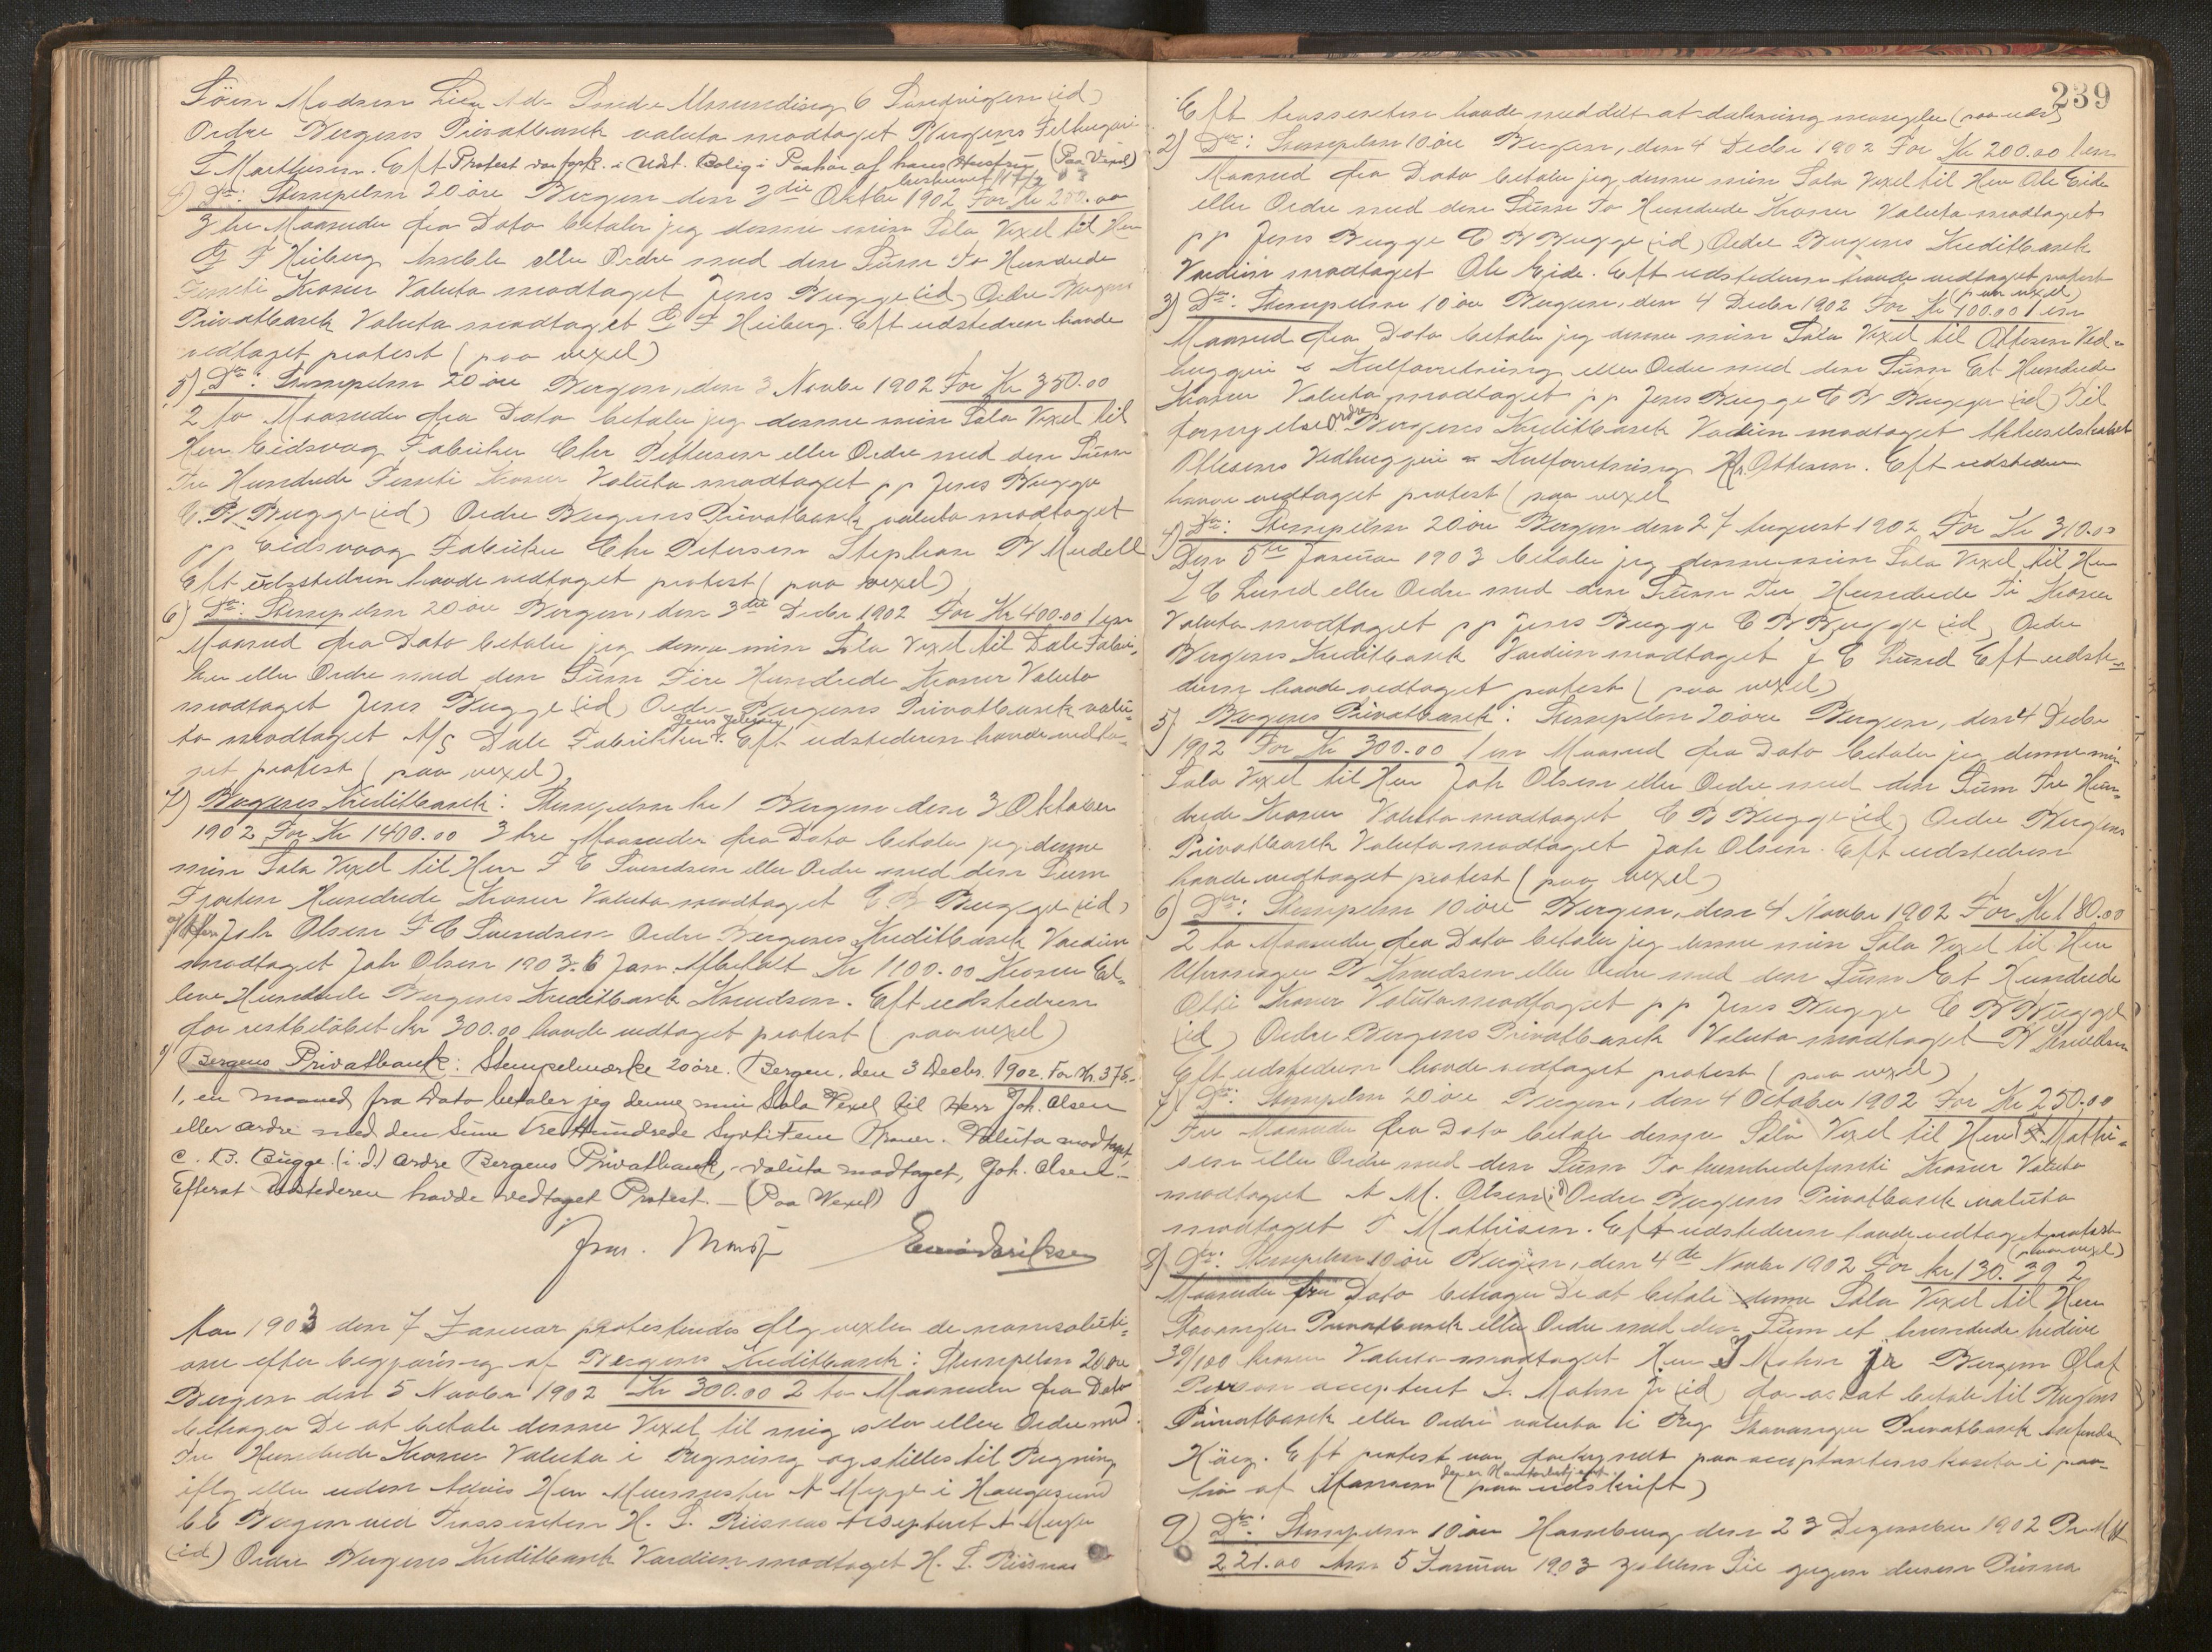 Søren Madsen Lien Adr Søndre Amundinsg 6 Sandvigen (id)
Ordre Bergens Privatbank valuta modtaget Bergens Felbugeri
S Marthinsen. Eft Protest var fork. i Udst. Bolig i Paahør af hans Hustru (Paa Vexel)
4) Do: Stempelm 20 öre Bergen den 3die Oktbr 1902 For Kr 250.00
3 tre Maaneder fra Dato betaler jeg denne min Sola Vexel til Herr
G F Heiberg eller Ordre med den Sum To Hundrede
Femti Kroner Valuta modtaget Jens Bugge (id) Ordre Bergens
Privatbank Valuta modtaget G F Heiberg. Eft udstederen havde
vedtaget protest (paa vexel)
5) Do: Stempelm 20 öre Bergen, den 3 Novbr 1902 For Kr 350.00
2 to Maaneder fra Dato betaler jeg denne min Sola Vexel til
Herr Eidsvaag Fabriker Chr Pettersen eller Ordre med den Sum
Tre Hundrede Femti Kroner Valuta modtaget pp Jens Bugge
C. B. Bugge (id) Ordre Bergens Privatbank valuta modtaget
pp Eidsvaag Fabriker Chr Petersen Stephan W Mudell
Eft udstederen havde vedtaget protest (paa vexel)
6) Do: Stempelm 20 öre Bergen, den 3die Decbr 1902 For Kr 400.00 1 en
Maaned fra Dato betaler jeg denne min Sola Vexel til Dale Fabri-
ker eller Ordre med den Sum Fire Hundrede Kroner Valuta
modtaget Jens Bugge (id) Ordre Bergens Privatbank valu-
ta modtaget A/S Dale Fabrikker Jens Jebsen. Eft udstederen havde vedta-
get protest (paa vexel)
7) Bergens Kreditbank: Stempelm kr 1 Bergen den 3 Oktober
1902 For Kr 1400.00 3 tre Maaneder fra Dato betaler jeg denne
min Sola Vexel til Herr F C Svendsen eller Ordre med den Sum
Fjorten Hundrede Kroner Valuta modtaget C B Bugge (id)
Joh Olsen F C Svendsen Ordre Bergens Kreditbank Værdien
modtaget Joh Olsen 1903. 6 Jan. Afbetalt Kr 1100.00 Kroner El-
leve Hundrede Bergens Kreditbank Knudsen. Eft udstederen
for restbeløbet kr 300.00 havde vedtaget protest (paa vexel)
Bergens Privatbank: Stempelmærke 20 öre. Bergen, den 3 Decbr. 1902. For Kr. 376.-
1, en maaned fra Dato betaler jeg denne min Sola Vexel til Herr Joh. Olsen
eller ordre med den Sum Trehundrede Kroner. Valuta modtaget
C. B. Bugge (id) ordre Bergens Privatbank, valuta modtaget, Joh. Olsen.-
Efterat Udstederen havde vedtaget Protest. - (Paa Vexel)
Aar 1903 den 7 Januar protesteredes flg vexler de nonsoluti-
one efter begjæring af Bergens Kreditbank: Stempelm 20 öre
Bergen den 5 Novber 1902 Kr 300.00 2 to Maaneder fra Dato
behager De at betale denne Vexel til mig selv eller Ordre med
Tre Hundrede Kroner Valuta i Regning og stilles til Regning
iflg eller uden Advis Herr Murmester A Meyer i Haugesund
Bergen ved Trassenten H. S. Riisnæs Accepteret A Meyer
(id) Ordre Bergens Kreditbank Værdien modtaget H. S. Riisnæs
239
Eft trassenten havde meddelt at dækning mangler (paa udst)
2) Do: Stempelm 10 öre Bergen, den 4 Decbr 1902 For Kr 200.00 1 en
Maaned fra Dato betaler jeg denne min Sola Vexel til Herr Ole Eide
eller Ordre med den Sum To Hundrede Kroner Valuta modtaget
pp Jens Bugge C B Bugge (id) Ordre Bergens Kreditbank
Værdien modtaget Ole Eide. Eft udstederen havde vedtaget protest
(paa vexel)
3) Do: Stempelm 10 öre Bergen, den 4 Decbr 1902 For Kr 100.00 1 en
Maaned fra Dato betaler jeg denne min Sola Vexel til Ottesen Ved-
huggeri & Kulforretning eller Ordre med den Sum Et Hundrede
Kroner Valuta modtaget pp Jens Bugge C B Bugge (id) Til
fornyelse ordre Bergens Kreditbank Værdien modtaget Aktieselskabet
Ottesens Vedhuggeri & Kulforretning Ottesen. Eft udstederen
havde vedtaget protest (paa vexel
4) Do: Stempelm 20 öre Bergen den 27 August 1902 For Kr 310.00
Den 5te Januar 1903 betaler jeg denne min Sola Vexel til Herr
J C Lund eller Ordre med den Sum Tre Hundrede Ti Kroner
Valuta modtaget pp Jens Bugge C B Bugge (id) Ordre
Bergens Kreditbank Værdien modtaget J C Lund Eft udste-
deren havde vedtaget protest (paa vexel)
5) Bergens Privatbank: Stempelm 20 öre Bergen, den 4 Decbr
1902 For Kr 300.00 1 en Maaned fra Dato betaler jeg denne min
Sola Vexel til Herr Joh Olsen eller Ordre med den Sum Tre Hun-
drede Kroner Valuta modtaget C B Bugge (id) Ordre Bergens
Privatbank Valuta modtaget Joh Olsen. Eft udstederen
havde vedtaget protest (paa vexel)
6) Do: Stempelm 10 öre Bergen, den 4 Novbr 1902 For Kr 180.00
2 to Maaneder fra Dato betaler jeg denne min Sola Vexel til Herr
Uhrmager B Knudsen eller Ordre med den Sum Et Hundrede
Otti Kroner Valuta modtaget pp Jens Bugge C B Bugge
(id) Ordre Bergens Privatbank Valuta modtaget B Knudsen
Eft udstederen havde vedtaget protest (paa vexel)
7) Do: Stempelm 20 öre Bergen, den 4 October 1902 For Kr 250.00
Tre Maaneder fra Dato betale denne Sola Vexel til Herr T. Mathi-
sen eller Ordre med den Sum To hundredefemti Kroner Valuta
modtaget A M. Olsen (id) Ordre Bergens Privatbank valuta
modtaget T Mathisen. Eft udstederen havde vedtaget protest
(paa vexel)
8) Do: Stempelm 10 öre Bergen, den 4de Novbr 1902 For kr 130.39 2
Maaneder fra Dato behager De at betale denne Sola Vexel til Herr
Stavanger Privatbank eller Ordre med den Sum et hundrede tredive
39/100 kroner Valuta modtaget Herr J Mohn jr Bergen Olaf
accepteret J. Mohn Jr (id) for os at betale til Bergens
Privatbank eller Ordre valuta i Reg Stavanger Privatbank
Eft protest var forkyndt paa acceptantens kontor i paa-
hør af (paa udskrift)
9) Do: Stempelm 10 öre Hamburg den 23 Dezember 1902 Pr M
221.00 Am 5 Januar 1903 zahlen Sie gegen diesen Prima